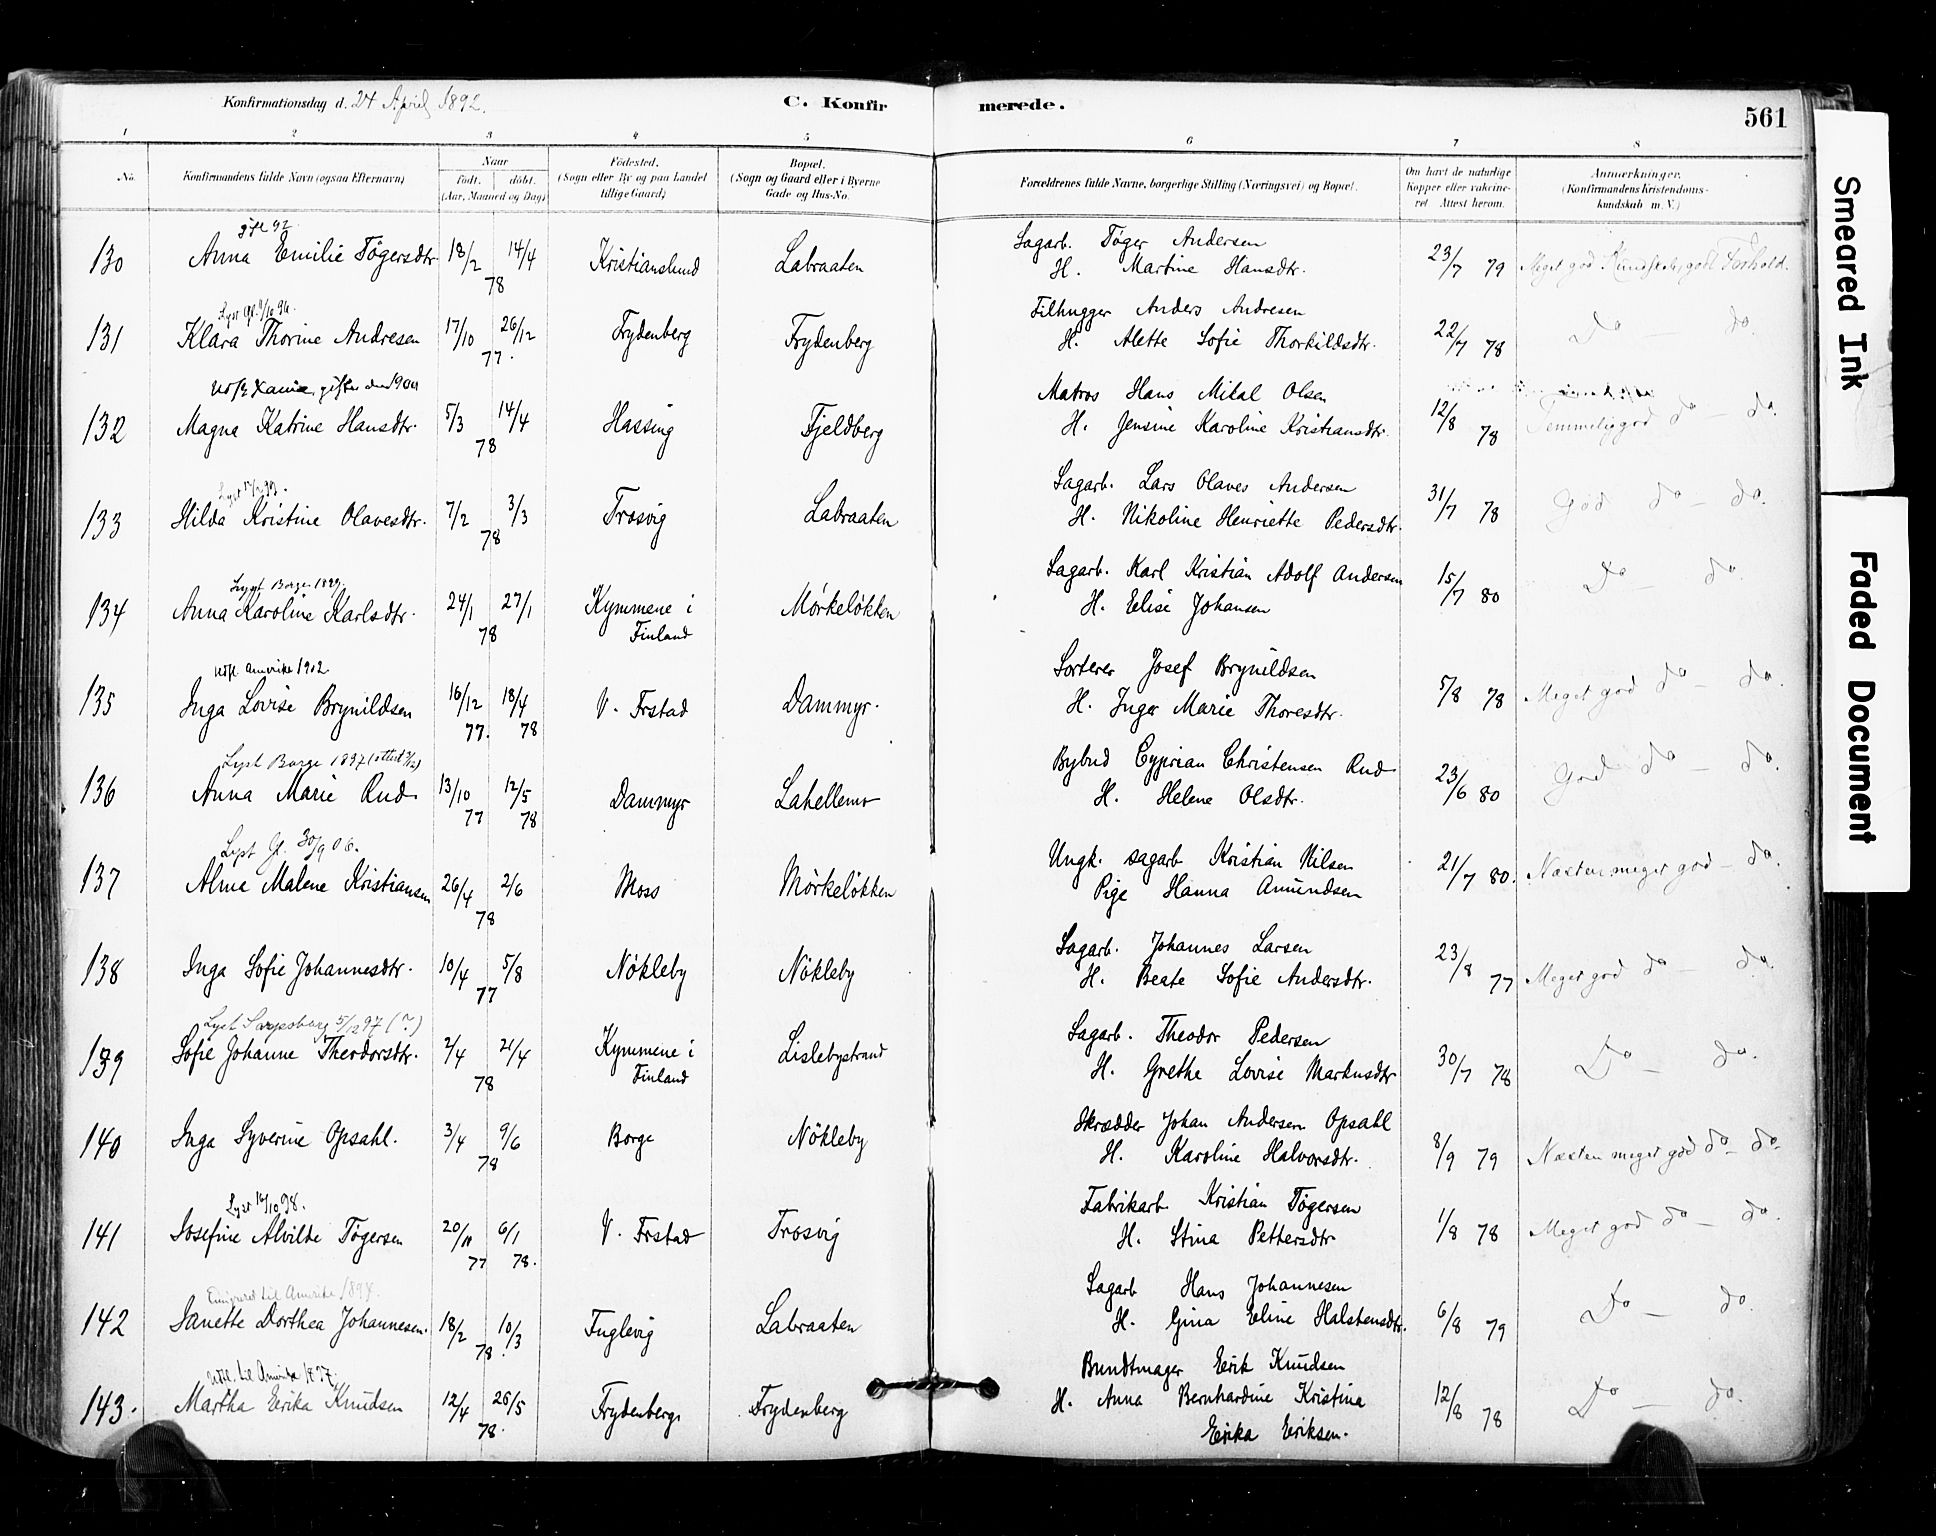 Konfirmationsdag d. 24 April 1892.
C. Konfirmerede.
561
1 2 3 4 5 6 7 8
No. Konfirmandens fulde Navn (ogsaa Efternavn) Naar født. døbt. (Aar, Maaned og Dag) Fødested. (Sogn eller By og paa Landet tillige Gaard) Bopæl. (Sogn og Gaard eller i Byerne Gade og Hus-No. Forældrenes fulde Navne, borgerlige Stilling (Næringsvei) og Bopæl. Om havt de naturlige Kopper eller vakcineret Attest herom. Anmærkninger. (Konfirmandens Kristendomskundskab m. V.)
130 Anna Emilie Tøgersdtr 18/2 14/4 78 Kristianslund Labraaten Sagarb. Tøger Andersen
H. Martine Hansdtr. 23/7 79 Meget god Kundskab, godt Forhold.
131 Klara Thorine Andresen 17/10 26/12 77. Frydenberg Frydenberg Filhugger Anders Andresen
H. Alette Sofie Thorkildsdtr. 22/7 78 Do — do.
132 Magna Katrine Hansdtr. 5/3 14/4 78 Hassing Fjeldberg Matros Hans Mikal Olsen
H. Jensine Karoline Kristiansdtr. 12/8 78 Temmelig god do — do.
Lyst
133 Hilda Kristine Olavesdtr. 7/2 3/3 78 Trosvig Labraaten Sagarb. Lars Olaves Andersen
H. Nikoline Henriette Pedersdtr. 31/7 78 God do — do.
Lyst Borge
134 Anna Karoline Karlsdtr. 24/1 27/1 78 Kymmene i Finland Mørkeløkken Sagarb. Karl Kristian Adolf Andersen
H. Elise Johansen 15/7 80 Do — do
Udfl. Amerika 1902.
135 Inga Lovise Brynildsen 16/12 77. 18/4 78 V. Frstad Dammyr. Sorterer Josef Brynildsen
H. Inger Marie Thoresdtr. 5/8 78 Meget god do — do.
Lyst Borge 1897
136 Anna Marie Rud 13/10 77 12/5 78 Dammyr Lahellemo Bybud Cyprian Christensen Rud
H. Helene Olsdtr. 23/6 80 God do — do.
Lyst Gl. 30/9 06.
137 Alma Malene Kristiansen 26/4 2/6 78 Moss Mørkeløkken Ungk. sagarb Kristian Nilsen
Pige Hanna Amundsen 21/7 80. Næsten meget god — do.
138 Inga Sofie Johannesdtr. 10/4 5/8 77 Nökleby Nökleby Sagarb. Johannes Larsen
H. Beate Sofie Andersdtr. 23/8 77 Meget god do do.
Lyst Sarpsborg 5/12 97 (?)
139 Sofie Johanne Theodorsdtr. 2/4 21/4 78 Kymmene i Finland Lislebystrand Sagarb. Theodor Pedersen
H. Grethe Lovise Markusdtr 30/7 78 Do — do.
140 Inga Syverine Opsahl. 3/4 9/6 78 Borge Nökleby Skrædder Johan Andersen Opsahl
H. Karoline Halvorsdtr. 8/9 79 Næsten meget god do — do.
Lyst 16/10 98.
141 Josefine Alvilde Tøgersen 20/11 77 6/1 78. V. Frstad Trosvig Fabrikarb Kristian Tøgersen
H. Stina Pettersdtr 1/8 78 Meget god do — do.
Emigreret til Amerika
142 Janette Dorthea Johannesen. 18/2 10/3 78. Fuglevig Labraaten Sagarb Hans Johannesen
H. Gina Eline Halstensdtr. 6/8 79 Do — do.
Udfl. til Amerika
143. Martha Erika Knudsen 12/4 26/5 78. Frydenberg Frydenberg Bundtmager Erik Knudsen
H. Anna Bernhardine Kristina
Erika Eriksen. 12/8 78 Do — do.
Smeared Ink
Faded Document